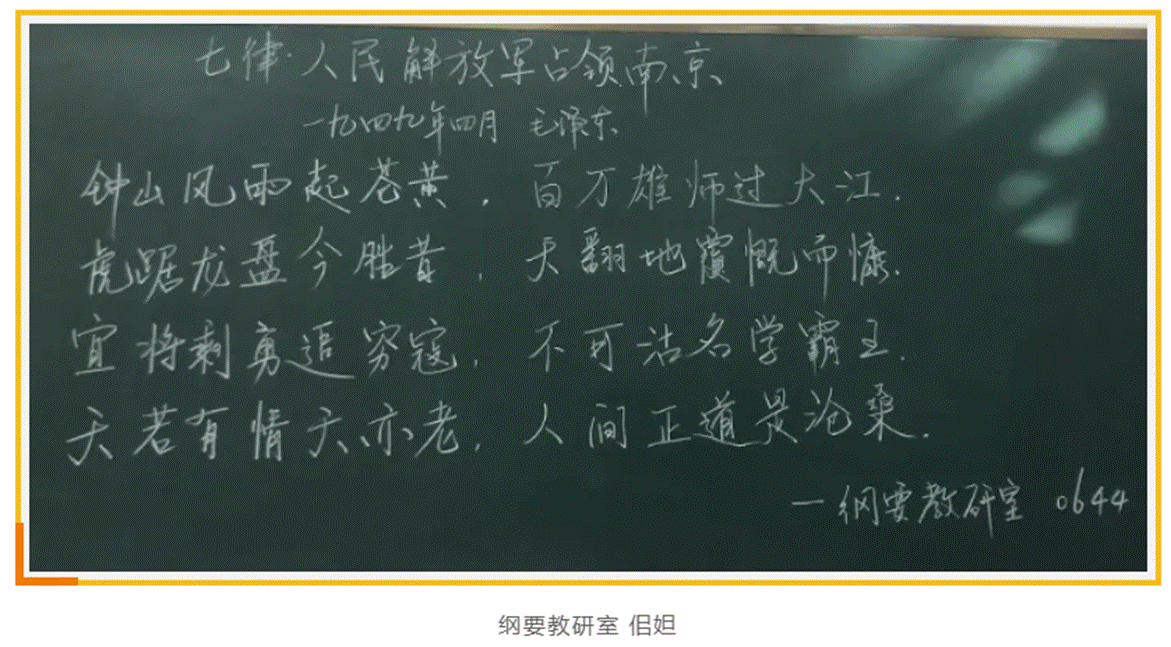 七律·人民解放军占领南京
一九四九年四月 毛泽东
钟山风雨起苍黄，百万雄师过大江.
虎踞龙盘今胜昔，天翻地覆慨而慷.
宜将剩勇追穷寇，不可沽名学霸王.
天若有情天亦老，人间正道是沧桑.
—纲要教研室 0644
纲要教研室 佀妲